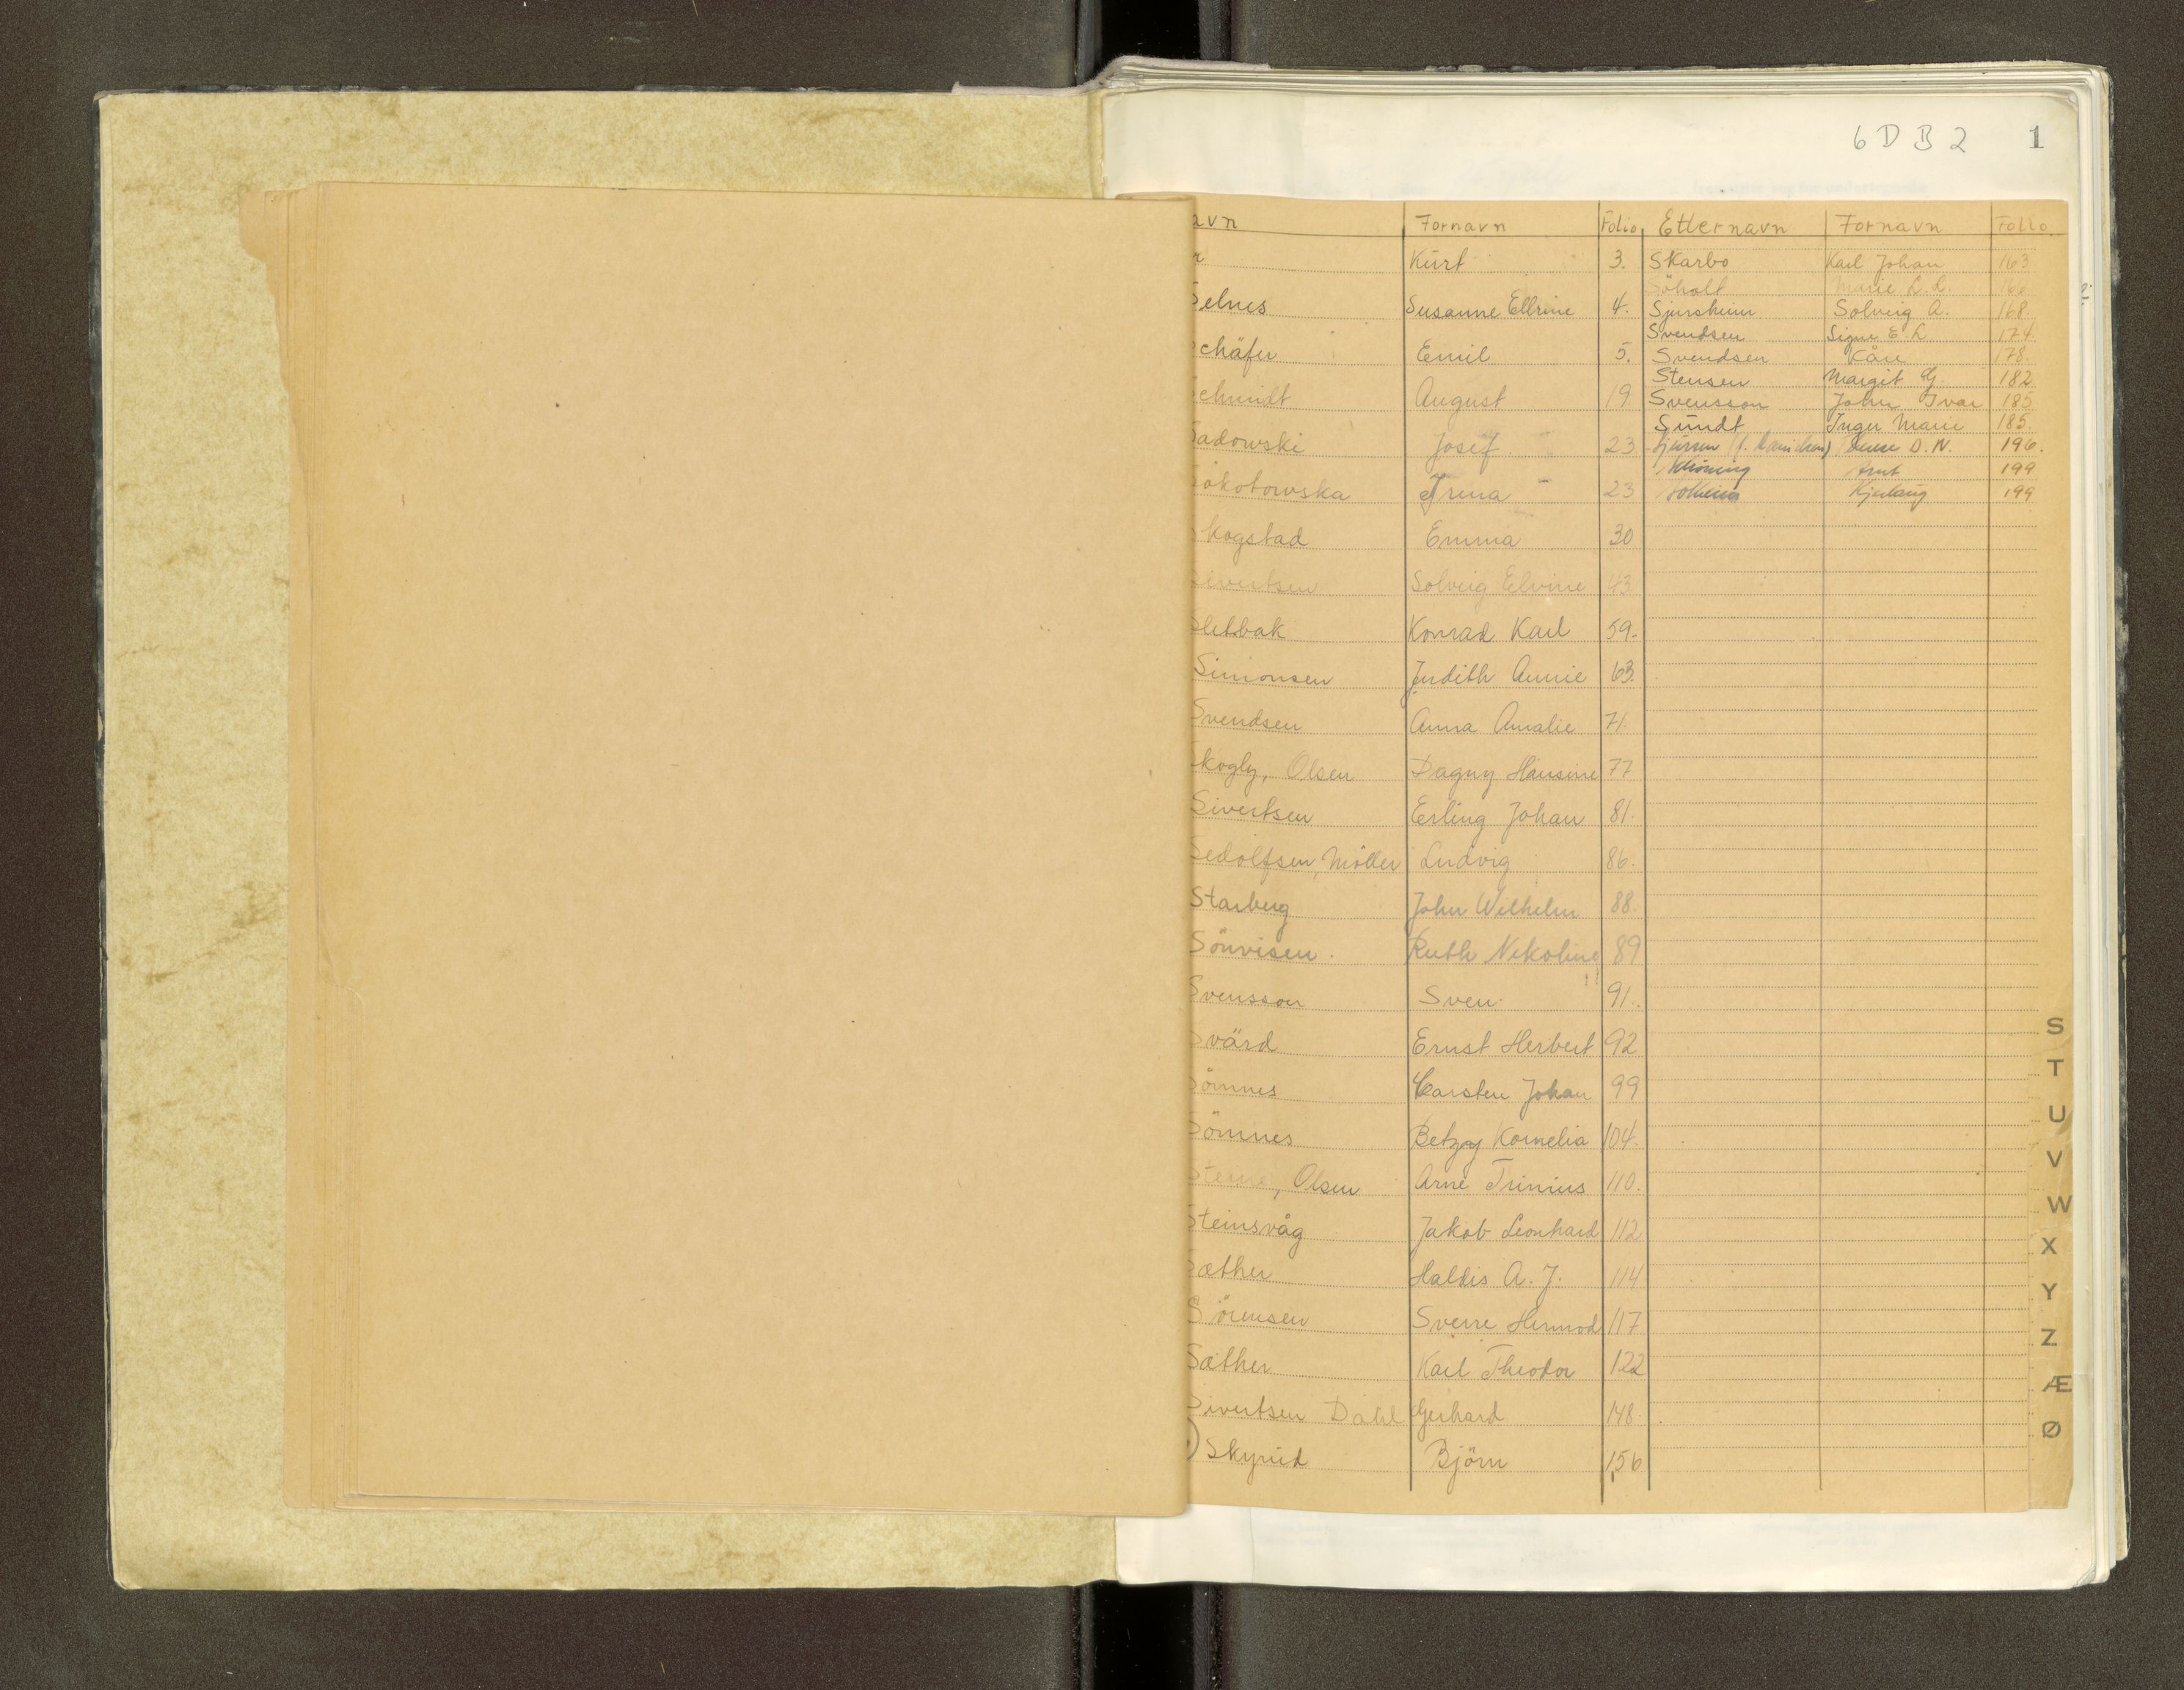 6 D B 2 1
avn Fornavn Folio Etternavn Fornavn Folio
r Kurt 3. Skarbo Karl Johan 163
Søholt Marie L. L. 166
Selnes Susanne Elbrine 4. Sjursheim Solveig A. 168.
Svendsen Signe E. L 174.
chäfer Emil 5. Svendsen Kåre 178.
Stensen Margit G. 182
chmidt August 19 Svensson John Ivar 185
Sundt Inger Marie 185.
Sadowski Josef 23 D. N. 196.
199
Sokotowska Irena 23 Kjellaug 199
kogstad Emma 30
Sivertsen Solveig Elvine 43
Slettbak Konrad Karl 59.
Simonsen Judith Annie 63.
Svendsen Anna Amalie 71.
kogly, Olsen Dagny Hansine 77
Sivertsen Erling Johan 81.
Sedolfsen, Möller Ludvig 86.
Starberg John Wilhelm 88.
Sönvisen. Ruth Nikoline 89
Svensson Sven 91.
Svärd Ernst Herbert 92
Sömnes Carsten Johan 99
Sömnes Betzy Kornelia 104.
Stene, Olsen Arne Trinius 110.
Steinsvåg Jakob Leonhard 112
Sæther Haldis A. J. 114
Sörensen Sverre Hermod 117
Sæther Karl Theodor 122
Sivertsen Dahl Gerhard 148.
Skyrud Björn 156
S
T
U
V
W
X
Y
Z
Æ
Ø